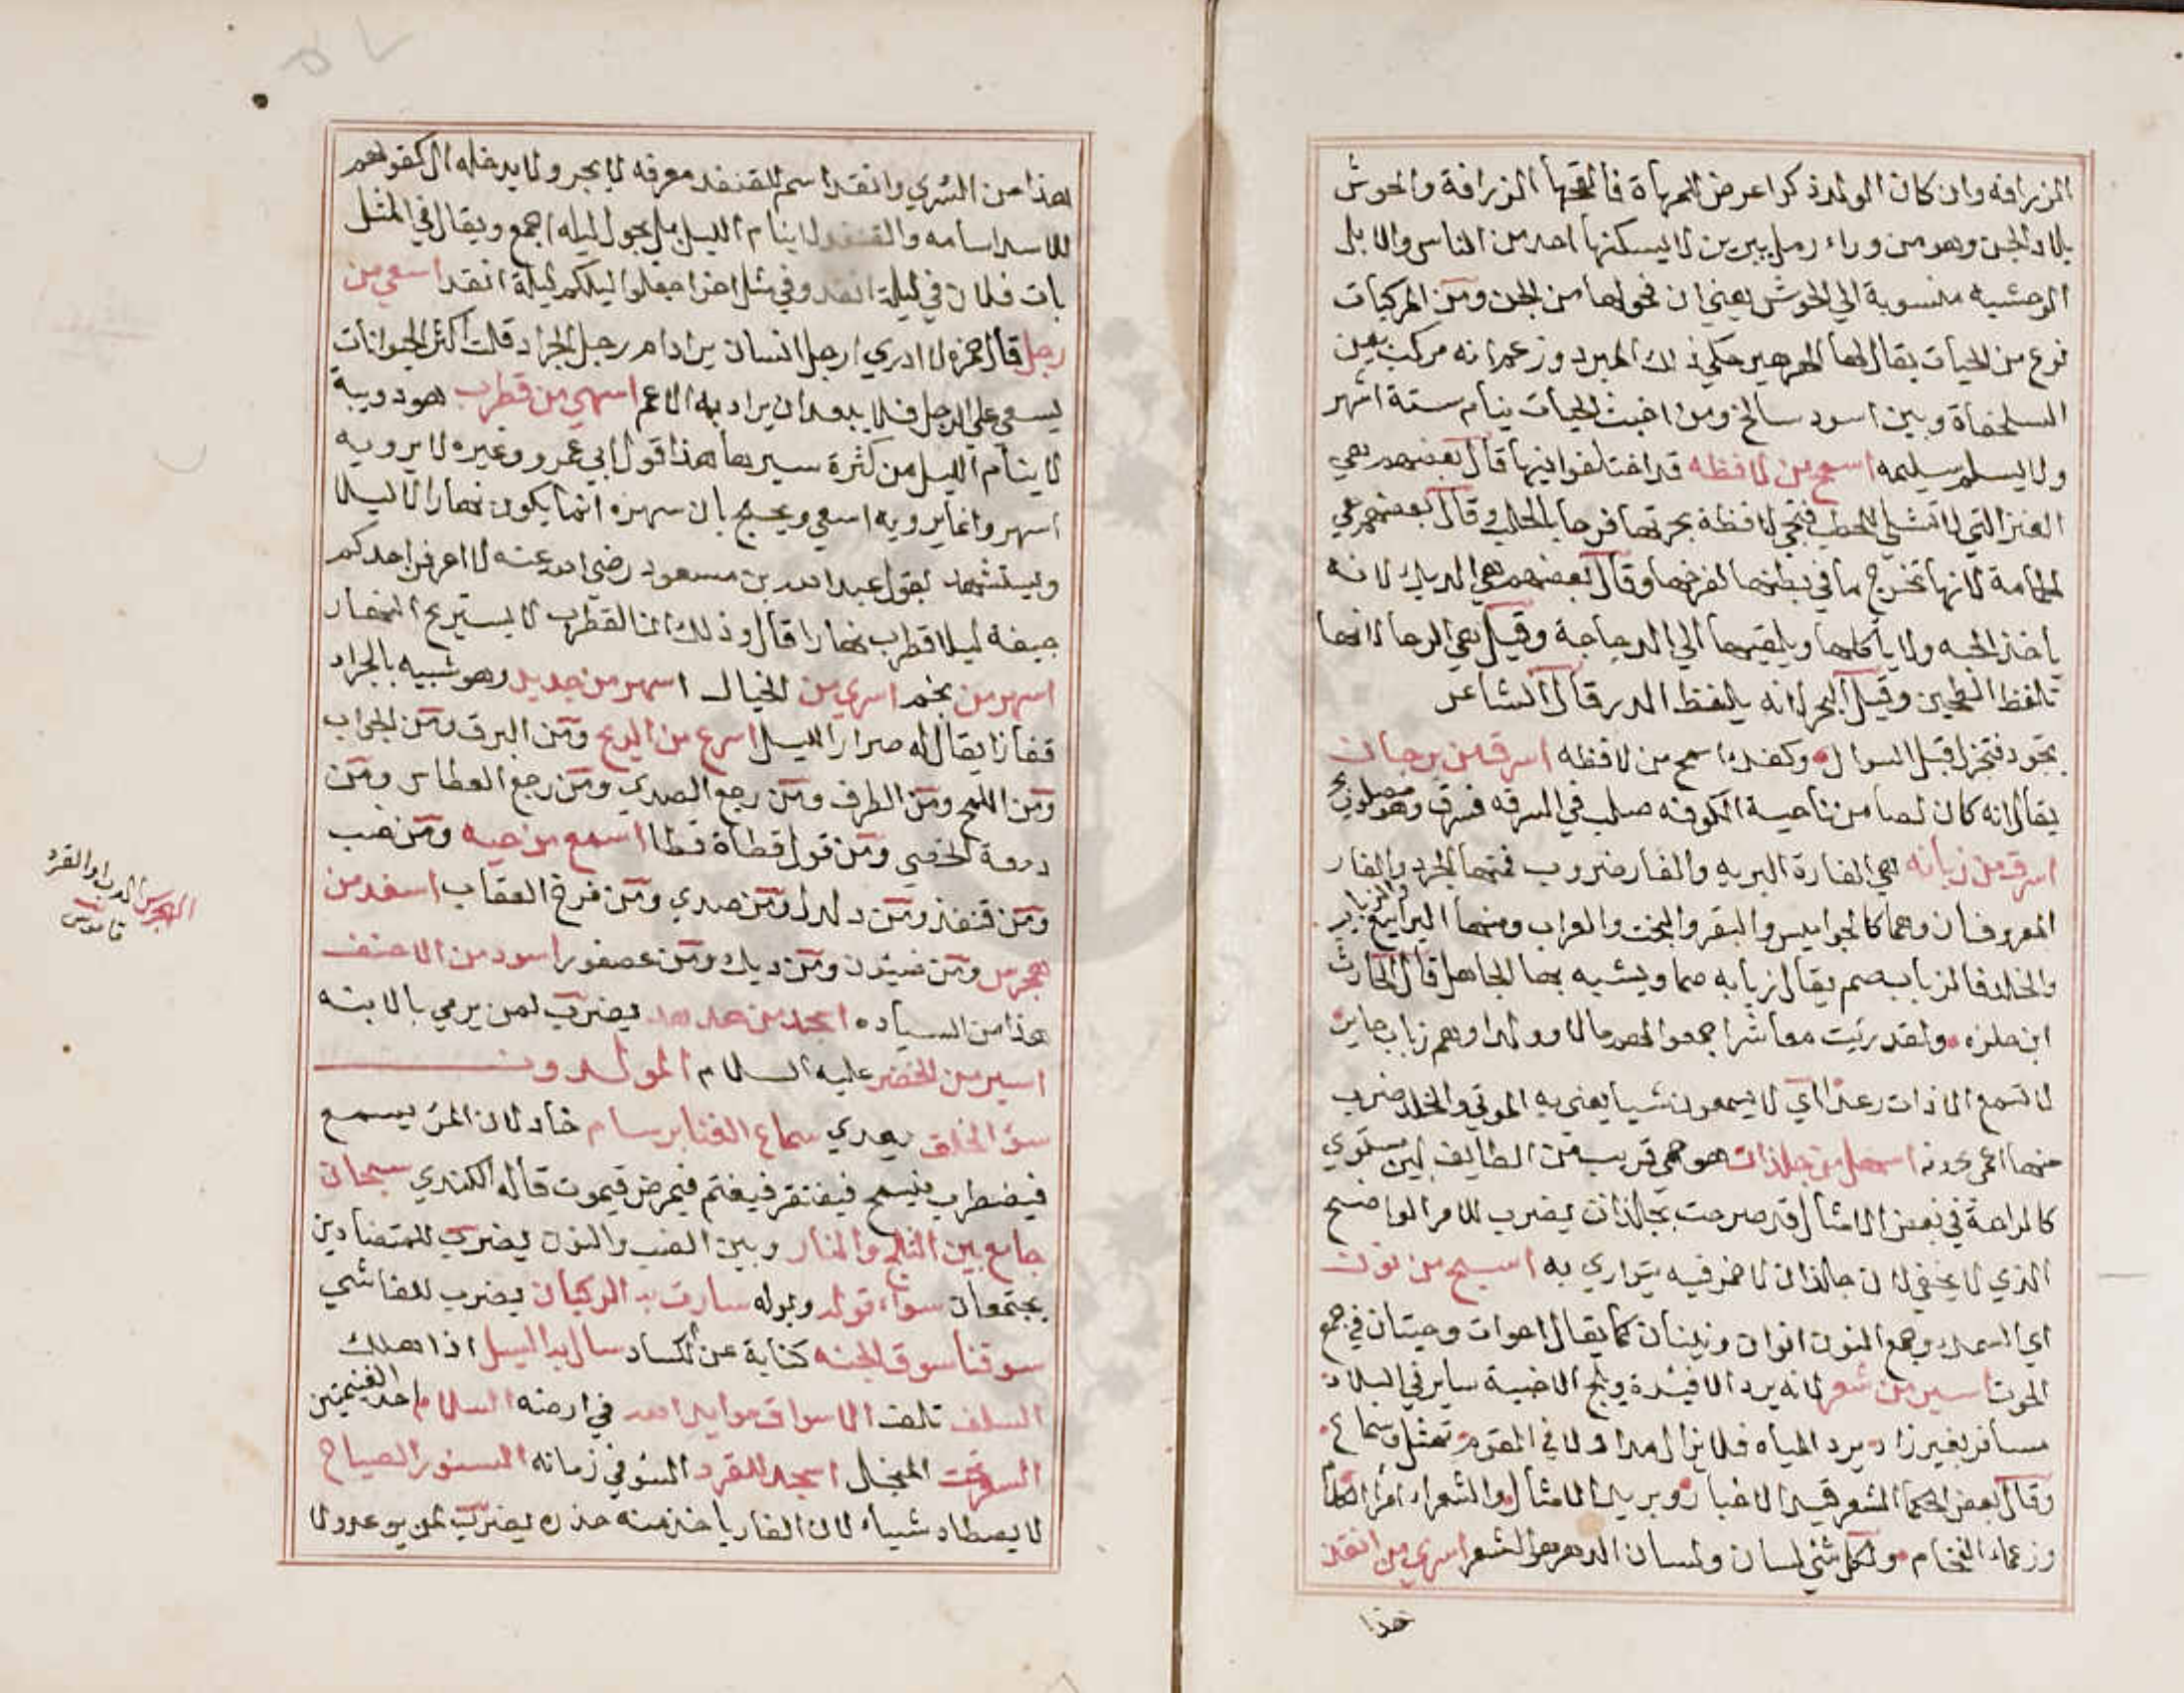 الزرافه وان كان الولد ذكرا عرض للمهاة فالقحها الزرافة والحوش
بلاد الجن وهو من وراء رمل يبرين لا يسكنها احد من الناس والابل
الوحشيه منسوبة الي الحوش يعني ان فحولها من الجن ومن المركبات
نوع من الحيات يقال لها الهرهير حكي ذلك المبرد وزعم انه مركب بين
السلحفاة وبين اسود سالخ ومن اخبث الحيات ينام ستة اشهر
ولا يسلم سليمه اسمح من لافظه قد اختلفوا فيها قال بعضهم هي
العنز التي لا تشلي للحلب فتجي لافظة بجرتها فرحا بالحلب وقال بعضهم هي
الحمامة لانها تخرج ما في بطنها لفرخها وقال بعضهم هي الديك لانه
ياخذ الحبه ولا ياكلها ويلقيها الي الدجاجة وقيل هي الرحا لانها
تلفظ الطحين وقيل البحر لانه يلفظ الدر قال الشاعر
تجود فتجزل قبل السوال وكفك اسمح من لافظه اسرق من برجان
يقال انه كان لصا من ناحية الكوفه صلب في السرقه فسرق وهو مصلوب
اسرق من زبابه هي الفارة البريه والفار ضروب فمنها الجرذ والفار
المعروفان وهما كالجواميس والبقر والبخت والعراب ومنها اليرابيع والزباب
والخلد فالزباب صم يقال زبابه صما ويشبه بها الجاهل قال الحارث
ابن حلزه ولقد رئيت معاشرا جمعوا لهم مالا وولدا وهم زباب حاير
لا تسمع الاذان رعدا اي لا يسمعون شيا يعني به الموتي والخلد ضرب
منها اعمي اسهل من جلذان هو حمي قريب من الطايف لين مستوي
كالراحة في بعض الامثال قد صرحت بجلذان يضرب للامر الواضح
الذي لا يخفي لان جلذان لا خمر فيه يتواري به اسبح من نون
اي السمك وجمع النون انوان ونينان كما يقال احوات وحيتان في جمع
الحوت اسير من شعر لانه يرد الاندية ويلج الاخبية ساير في البلاد
مسافر بغير زاد يرد المياه فلا يزال مداولا في القوم بين تمثل وسماع
وقال بعض الحكما الشعر قيد الاخبار وبريد الامثال والشعراء امراء الكلام
وزعماء الفخام ولكل شي لسان ولسان الدهر هو الشعر اسري من انقد
هذا
هذا من السري وانقد اسم للقنفد معرفه لا يجر ولا يدخله ال كقولهم
للاسد اسامه والقنفد لا ينام الليل بل يجول ليله اجمع ويقال في المثل
بات فلان في ليلة انقد وفي مثل اخر اجعلوا ليلكم ليلة انقد اسعي من
رجل قال حمزه لا ادري ارجل انسان يراد ام رجل الجراد قلت اكثر الحيوانات
يسعي علي الرجل فلا يبعد ان يراد به الاعم اسهر من قطرب هو دويبة
لا ينام الليل من كثرة سيرها هذا قول ابي عمرو وغيره لا يرويه
اسهر وانما يرويه اسعي ويحتج بان سهره انما يكون نهارا لا ليلا
ويستشهد بقول عبد الله بن مسعود رضي الله عنه لا اعرفن احدكم
جيفة ليلا قطرب نهارا قال وذلك ان القطرب لا يستريح النهار
اسهر من نجم اسري من الخيال اسهر من جدجد وهو شبيه بالجراد
قفاز يقال له صرار الليل اسرع من الريح ومن البرق ومن الجواب
ومن اللمح ومن الطرف ومن رجع الصدي ومن رجع العطاس ومن
دمعة الخصي ومن قول قطاة قطا اسمع من حيه ومن ضب
ومن قنفذ ومن دلدل ومن صدي ومن فرخ العقاب اسفد من
هجرس ومن ضيون ومن ديك ومن عصفور اسود من الاحنف
هذا من السياده اسجد من هدهد يضرب لمن يرمي بالابنه
اسير من الخضر عليه السلام المولدون
سؤ الخلق يعدي سماع الغنا برسام حاد لان المرء يسمع
فيضطرب فيسمح فيفتقر فيغتم فيمرض فيموت قاله الكندي سبحان
جامع بين الثلج والنار وبين الضب والنون يضرب للمتضادين
يجتمعان سواء قوله وبوله سارت به الركبان يضرب للفاشي
سوقنا سوق الجنه كناية عن الكساد سال به السيل اذا هلك
السلف تلف الاسواق موايد الله في ارضه السلام احد الغنيمتين
السفر المنجال اسجد للقرد السؤ في زمانه السنور الصياح
لا يصطاد شيياء لان الفار ياخذ منه حذره يضرب لمن يوعد ولا
الهجرس الدب او القرد
قاموس